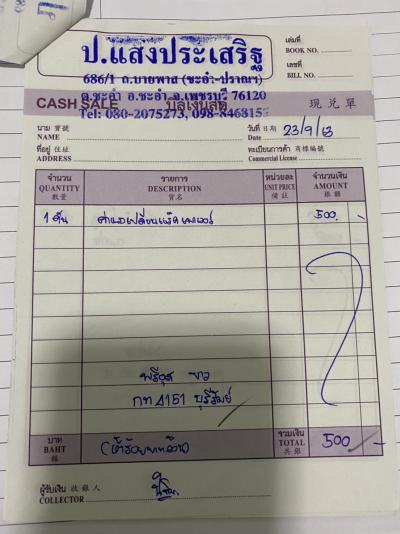 ป.แสงประเสริฐ
686/1 ถ.บายพาส (ชะอำ-ปราณฯ)
ต.ชะอำ อ.ชะอำ จ.เพชรบุรี 76120
Tel: 080-2075273, 098-8468155
เล่มที่
BOOK NO.
เลขที่
BILL NO.
CASH SALE บิลเงินสด 現兌單
นาม 寶號
NAME
วันที่ 日期
Date 23/9/63
ที่อยู่ 住址
ADDRESS
ทะเบียนการค้า 商標編號
Commercial License
จำนวน รายการ หน่วยละ จำนวนเงิน
QUANTITY DESCRIPTION UNIT PRICE AMOUNT
數量 貨名 備註 銀額
1 คัน 500 -
กท 4151 บุรีรัมย์
บาท
BAHT
銖
(ห้าร้อยบาทถ้วน)
รวมเงิน
TOTAL
共銀
500 -
ผู้รับเงิน 收銀人
COLLECTOR